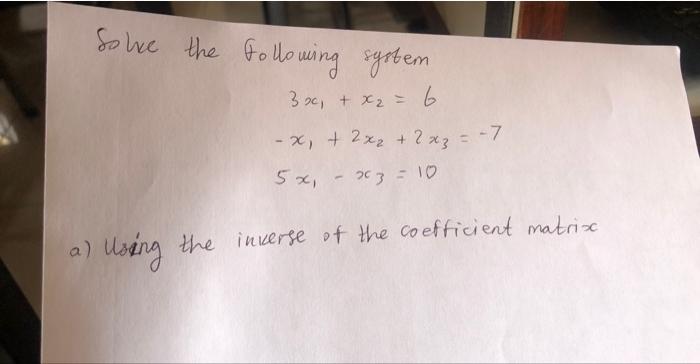 Solve the following system
3x₁ + x₂ = 6
-x₁ + 2x₂ + 2x₃ = -7
5x₁ - x₃ = 10
a) Using the inverse of the coefficient matrix